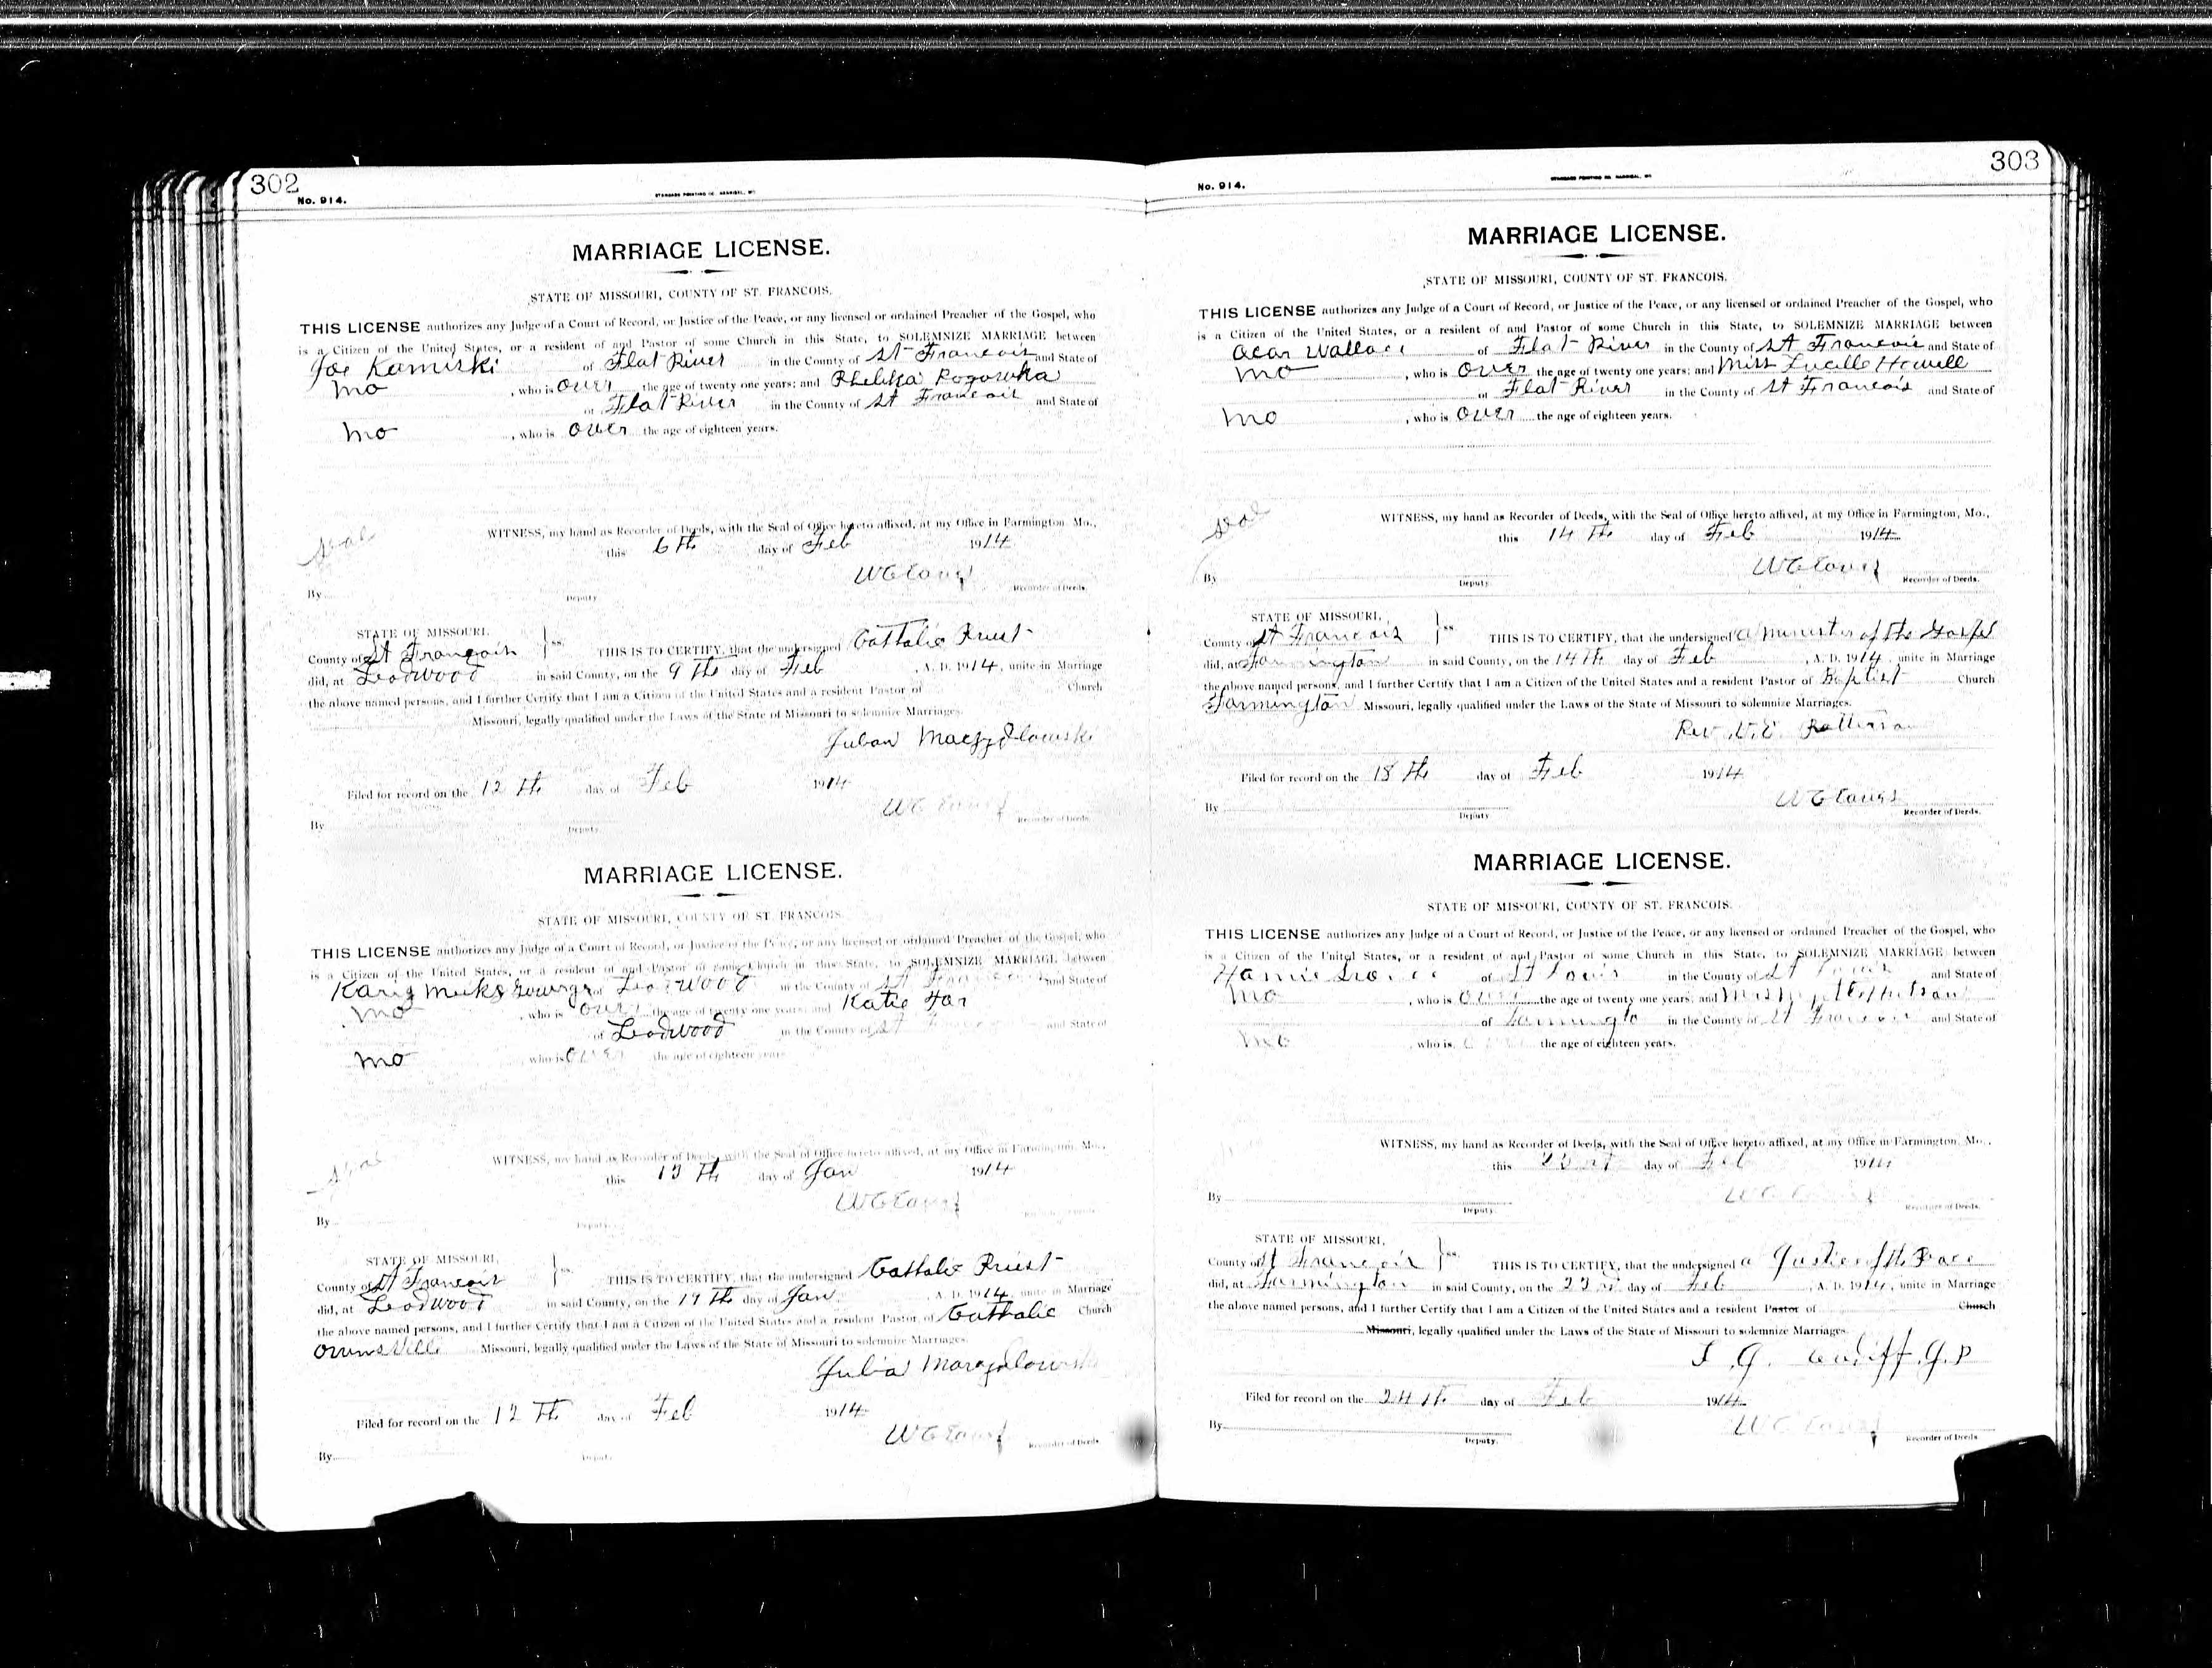 302
No. 914.
STANDARD PRINTING CO. HANNIBAL, MO.
MARRIAGE LICENSE.
STATE OF MISSOURI, COUNTY OF ST. FRANCOIS.
THIS LICENSE authorizes any Judge of a Court of Record, or Justice of the Peace, or any licensed or ordained Preacher of the Gospel, who
is a Citizen of the United States, or a resident of and Pastor of some Church in this State, to SOLEMNIZE MARRIAGE between
Joe Kamiski of Flat River in the County of St Francois and State of
Mo , who is over the age of twenty one years; and Rogowska
of Flat River in the County of St Francois and State of
Mo , who is over the age of eighteen years.
Seal
WITNESS, my hand as Recorder of Deeds, with the Seal of Office hereto affixed, at my Office in Farmington, Mo.,
this 6th day of Feb 1914
Recorder of Deeds.
By Deputy
STATE OF MISSOURI,
County of St Francois ss. THIS IS TO CERTIFY, that the undersigned Catholic Priest
did, at Leadwood in said County, on the 9th day of Feb , A. D. 1914, unite in Marriage
the above named persons, and I further Certify that I am a Citizen of the United States and a resident Pastor of Church
Missouri, legally qualified under the Laws of the State of Missouri to solemnize Marriages.
Filed for record on the 12th day of Feb 1914
By Deputy. Recorder of Deeds.
MARRIAGE LICENSE.
STATE OF MISSOURI, COUNTY OF ST. FRANCOIS.
THIS LICENSE authorizes any Judge of a Court of Record, or Justice of the Peace, or any licensed or ordained Preacher of the Gospel, who
is a Citizen of the United States, or a resident of and Pastor of some Church in this State, to SOLEMNIZE MARRIAGE between
of Leadwood in the County of St and State of
Mo , who is over the age of twenty one years; and Katie
of Leadwood in the County of St and State of
Mo , who is over the age of eighteen years
Seal
WITNESS, my hand as Recorder of Deeds, with the Seal of Office hereto affixed, at my Office in Farmington, Mo.,
this day of Jan 1914
By Deputy.
STATE OF MISSOURI,
County of St Francois ss. THIS IS TO CERTIFY, that the undersigned Catholic Priest
did, at Leadwood in said County, on the day of Jan A. D. 1914, unite in Marriage
the above named persons, and I further Certify that I am a Citizen of the United States and a resident Pastor of Catholic Church
Missouri, legally qualified under the Laws of the State of Missouri to solemnize Marriages.
Filed for record on the 12th day of Feb 1914
Recorder of Deeds
By Deputy.
303
No. 914.
STANDARD PRINTING CO. HANNIBAL, MO.
MARRIAGE LICENSE.
STATE OF MISSOURI, COUNTY OF ST. FRANCOIS.
THIS LICENSE authorizes any Judge of a Court of Record, or Justice of the Peace, or any licensed or ordained Preacher of the Gospel, who
is a Citizen of the United States, or a resident of and Pastor of some Church in this State, to SOLEMNIZE MARRIAGE between
Wallace of Flat River in the County of St Francois and State of
Mo , who is over the age of twenty one years; and Miss Lucille Howell
of Flat River in the County of St Francois and State of
Mo , who is over the age of eighteen years.
Seal
WITNESS, my hand as Recorder of Deeds, with the Seal of Office hereto affixed, at my Office in Farmington, Mo.,
this 14th day of Feb 1914
By Deputy. Recorder of Deeds.
STATE OF MISSOURI,
County of St Francois ss. THIS IS TO CERTIFY, that the undersigned a Minister of the Gospel
did, at Farmington in said County, on the 14th day of Feb , A. D. 1914, unite in Marriage
the above named persons, and I further Certify that I am a Citizen of the United States and a resident Pastor of Baptist Church
Farmington Missouri, legally qualified under the Laws of the State of Missouri to solemnize Marriages.
Rev.
Filed for record on the 18th day of Feb 1914
By Deputy Recorder of Deeds.
MARRIAGE LICENSE.
STATE OF MISSOURI, COUNTY OF ST. FRANCOIS.
THIS LICENSE authorizes any Judge of a Court of Record, or Justice of the Peace, or any licensed or ordained Preacher of the Gospel, who
is a Citizen of the United States, or a resident of and Pastor of some Church in this State, to SOLEMNIZE MARRIAGE between
of St Louis in the County of St Louis and State of
Mo , who is over the age of twenty one years; and Miss
of in the County of St Francois and State of
Mo , who is the age of eighteen years.
WITNESS, my hand as Recorder of Deeds, with the Seal of Office hereto affixed, at my Office in Farmington, Mo.,
this day of Feb 1914
By Deputy. Recorder of Deeds.
STATE OF MISSOURI,
County of St Francois ss. THIS IS TO CERTIFY, that the undersigned a Justice of the Peace
did, at Farmington in said County, on the day of Feb , A. D. 1914, unite in Marriage
the above named persons, and I further Certify that I am a Citizen of the United States and a resident Pastor of Church
Missouri, legally qualified under the Laws of the State of Missouri to solemnize Marriages.
J.P
Filed for record on the 24th day of Feb 1914
By Deputy. Recorder of Deeds